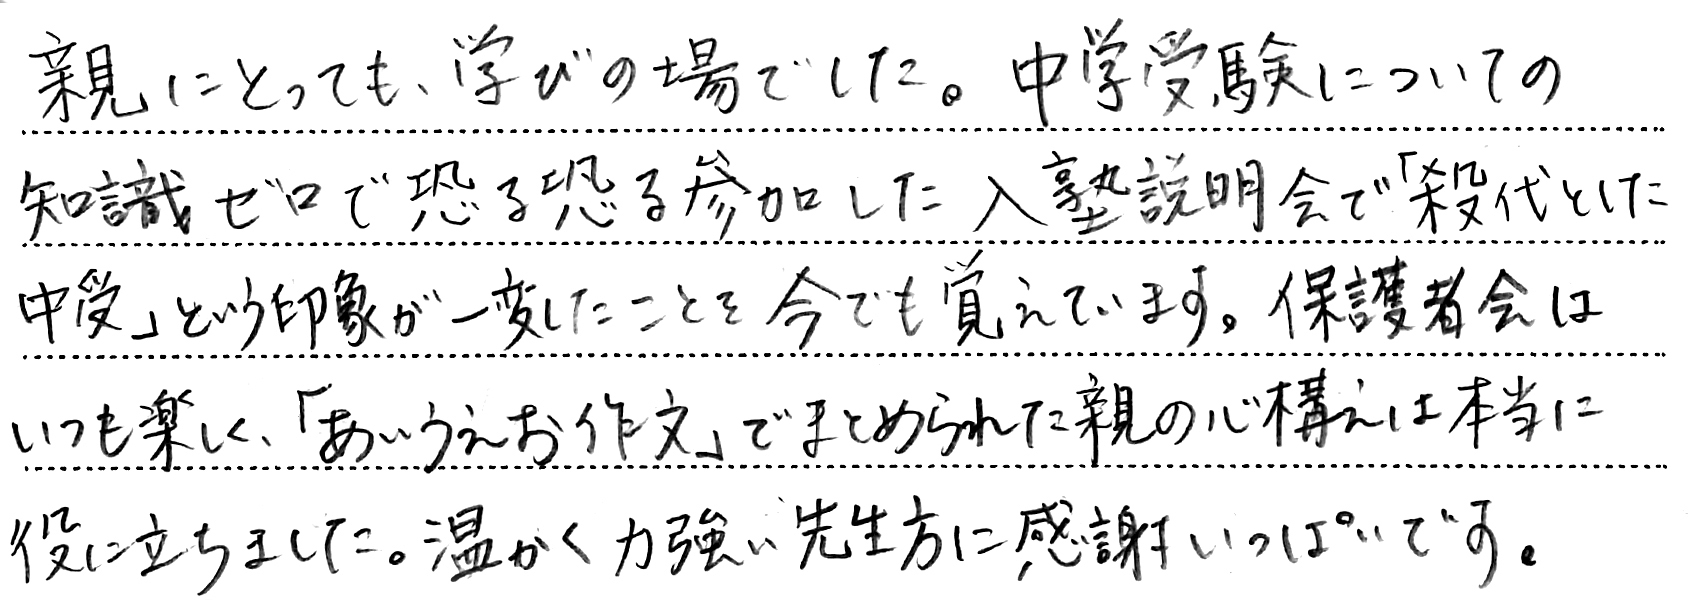 親にとっても、学びの場でした。中学受験についての
知識ゼロで恐る恐る参加した入塾説明会で「殺伐とした
中受」という印象が一変したことを今でも覚えています。保護者会は
いつも楽しく、「あいうえお作文」でまとめられた親の心構えは本当に
役に立ちました。温かく力強い先生方に感謝いっぱいです。